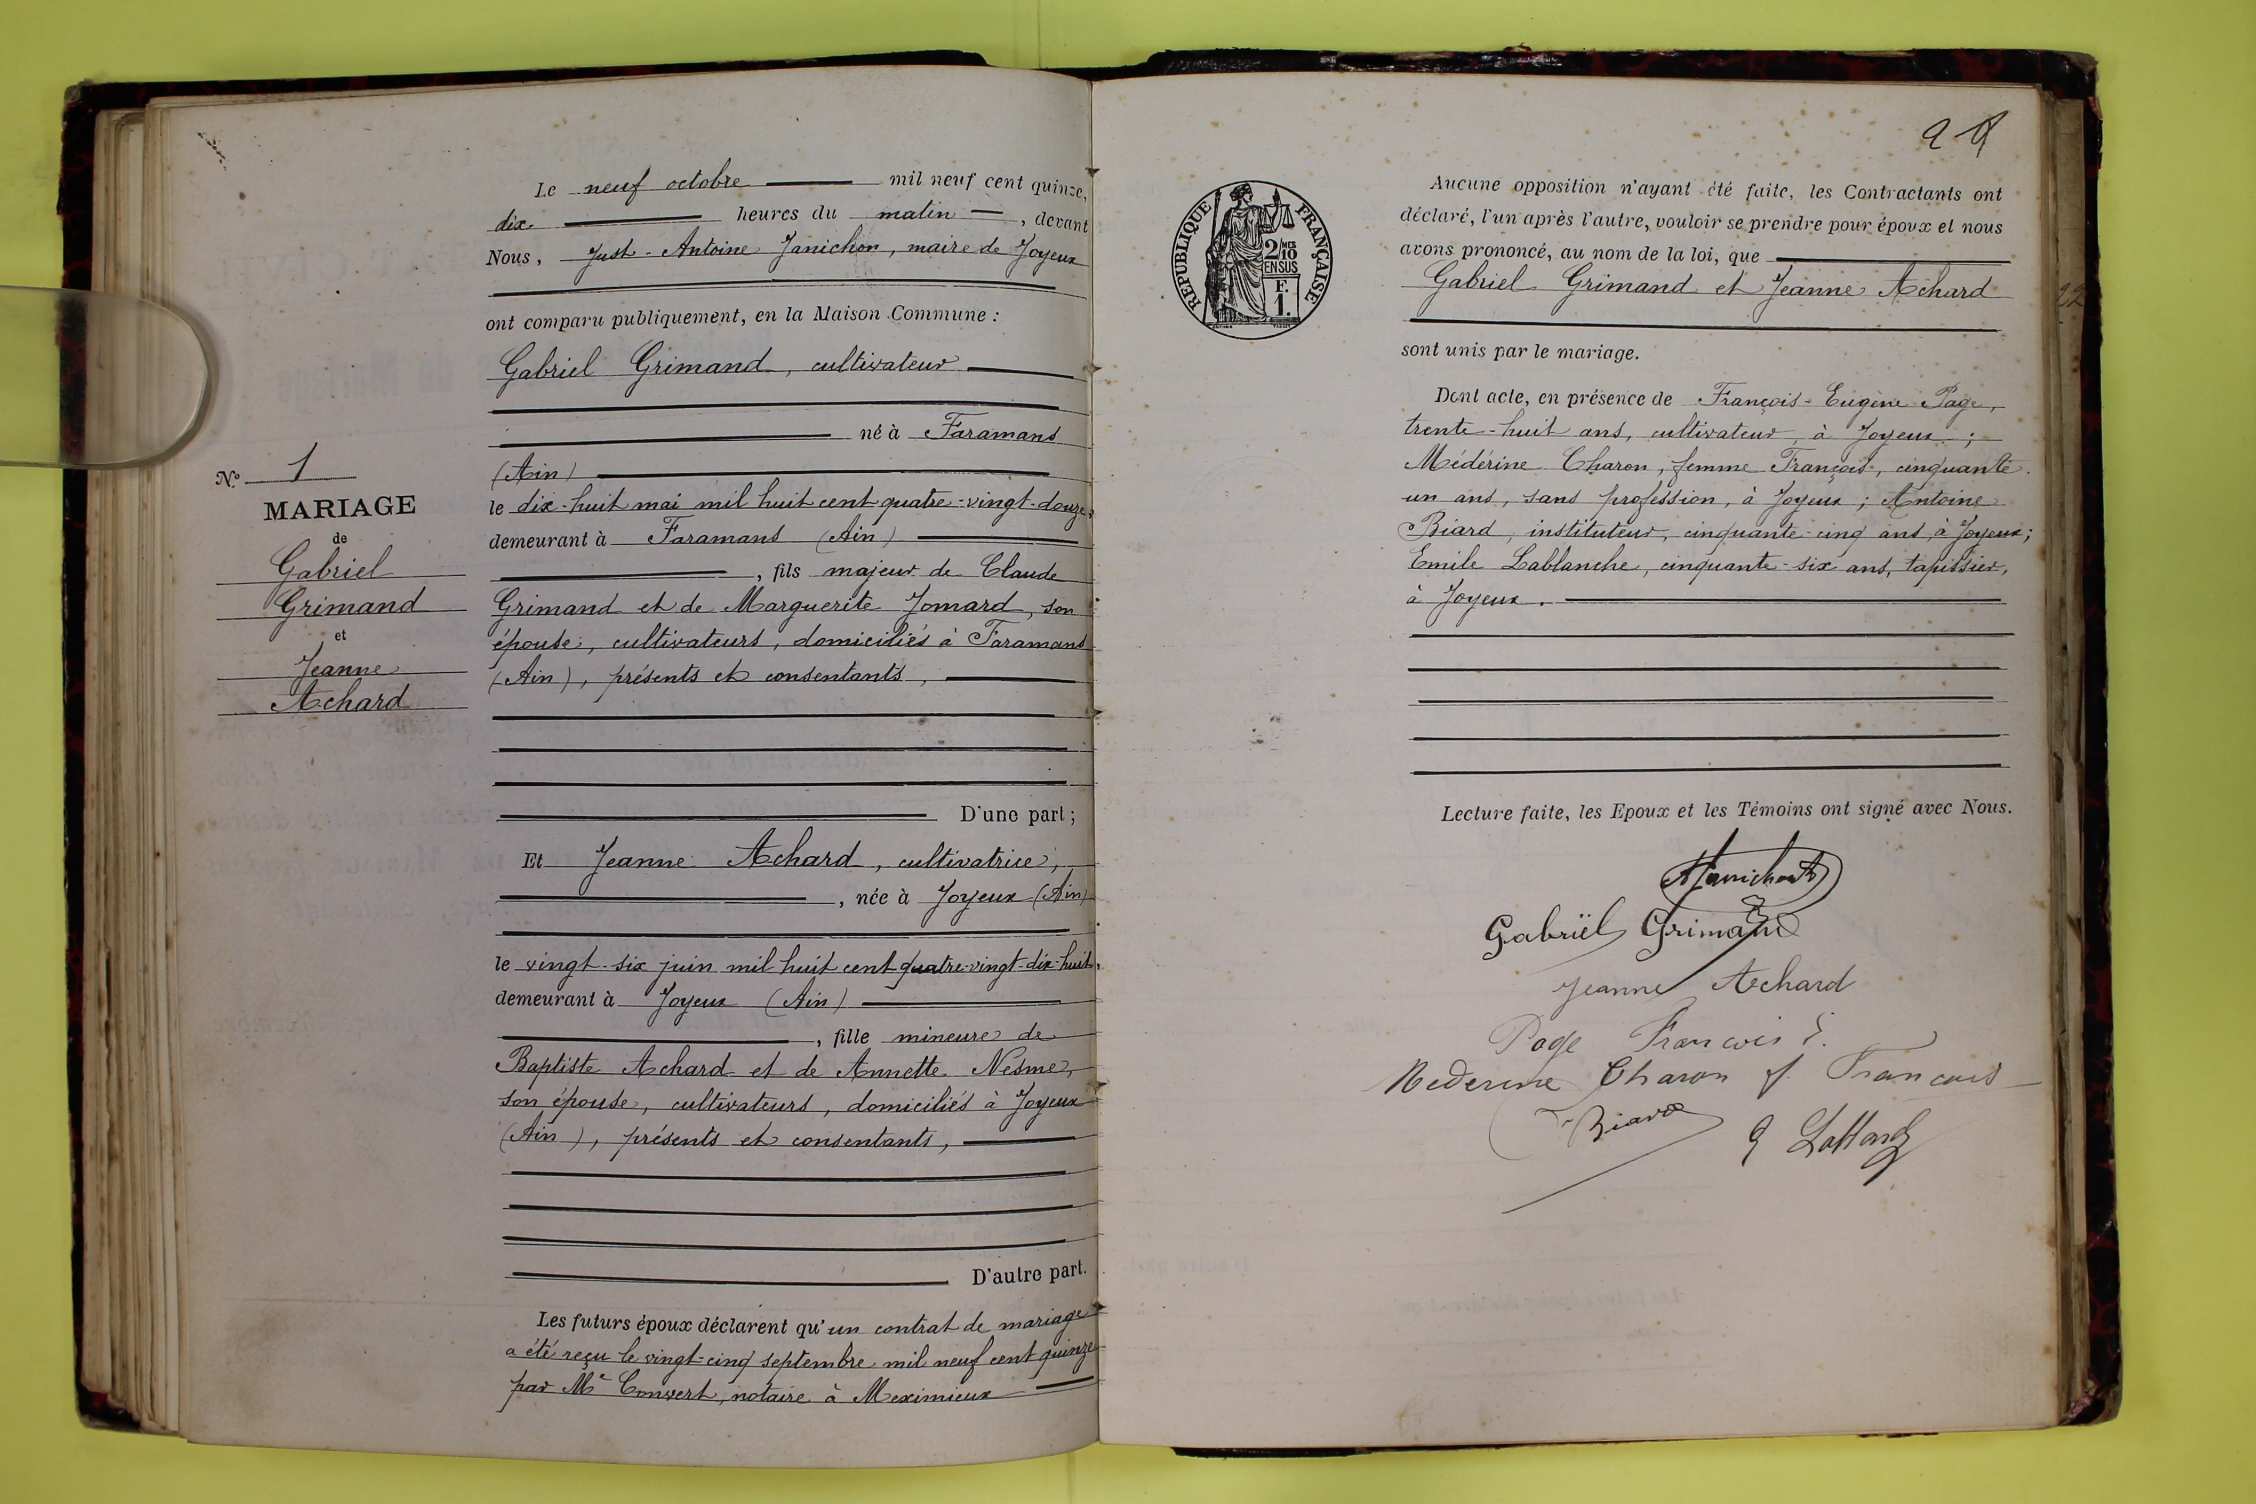 Le neuf octobre mil neuf cent quinze,
dix heures du matin, devant
Nous, Just-Antoine Janichon, maire de Joyeux
ont comparu publiquement, en la Maison Commune :
Gabriel Grimand, cultivateur
né à Faramans
(Ain)
le dix-huit mai mil huit cent quatre-vingt-douze,
demeurant à Faramans (Ain)
, fils majeur de Claude
Grimand et de Marguerite Jomard, son
épouse, cultivateurs, domiciliés à Faramans
(Ain), présents et consentants,
D'une part ;
Et Jeanne Achard, cultivatrice,
, née à Joyeux (Ain)
le vingt-six juin mil huit cent quatre-vingt-dix-huit,
demeurant à Joyeux (Ain)
, fille mineure de
Baptiste Achard et de Annette Nesme,
son épouse, cultivateurs, domiciliés à Joyeux
(Ain), présents et consentants,
D'autre part.
Les futurs époux déclarent qu'un contrat de mariage
a été reçu le vingt-cinq septembre mil neuf cent quinze
par Me Convert, notaire à Meximieux
N° 1
MARIAGE
de
Gabriel
Grimand
et
Jeanne
Achard
RÉPUBLIQUE FRANÇAISE
2/10 MES
EN SUS
F.
1.
Aucune opposition n'ayant été faite, les Contractants ont
déclaré, l'un après l'autre, vouloir se prendre pour époux et nous
avons prononcé, au nom de la loi, que
Gabriel Grimand et Jeanne Achard
sont unis par le mariage.
Dont acte, en présence de François-Eugène Page,
trente-huit ans, cultivateur, à Joyeux ;
Médérine Charon, femme François, cinquante
un ans, sans profession, à Joyeux ; Antoine
Biard, instituteur, cinquante-cinq ans, à Joyeux ;
Emile Lablanche, cinquante-six ans, tapissier,
à Joyeux.
Lecture faite, les Epoux et les Témoins ont signé avec Nous.
Gabriël Grimand
Jeanne Achard
Page François E.
Mederine Charon f. Francois
Biard
22